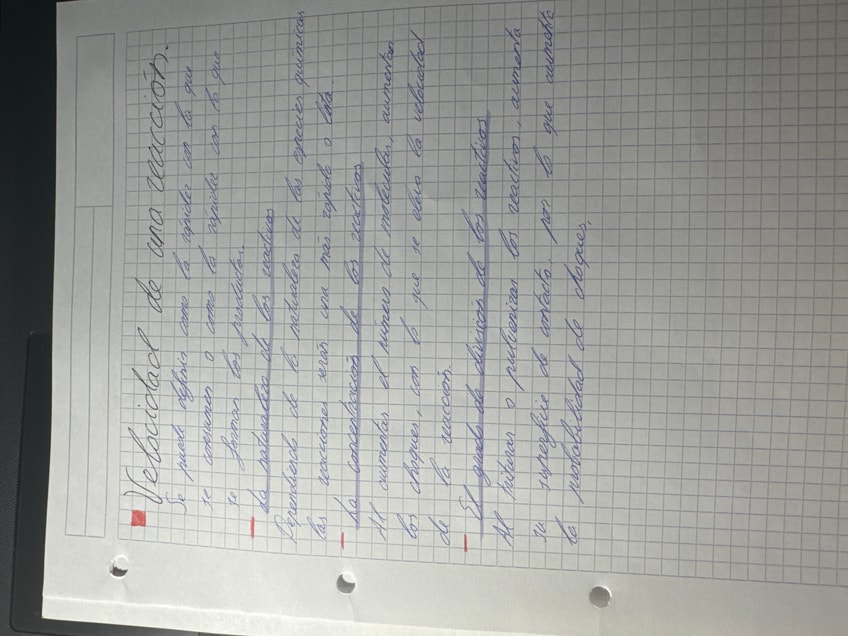 Velocidad de una reacción.
Se puede definir como la rapidez con la que
se consumen o como la rapidez con la que
se forman los productos.
- La naturaleza de los reactivos
Dependiendo de la naturaleza de las especies químicas
las reacciones serán una más rápida o lenta.
- La concentración de los reactivos
Al aumentar el número de moléculas, aumentan
los choques, con lo que se eleva la velocidad
de la reacción.
- El grado de división de los reactivos
Al triturar o pulverizar los reactivos, aumenta
su superficie de contacto, por lo que aumenta
la probabilidad de choques.